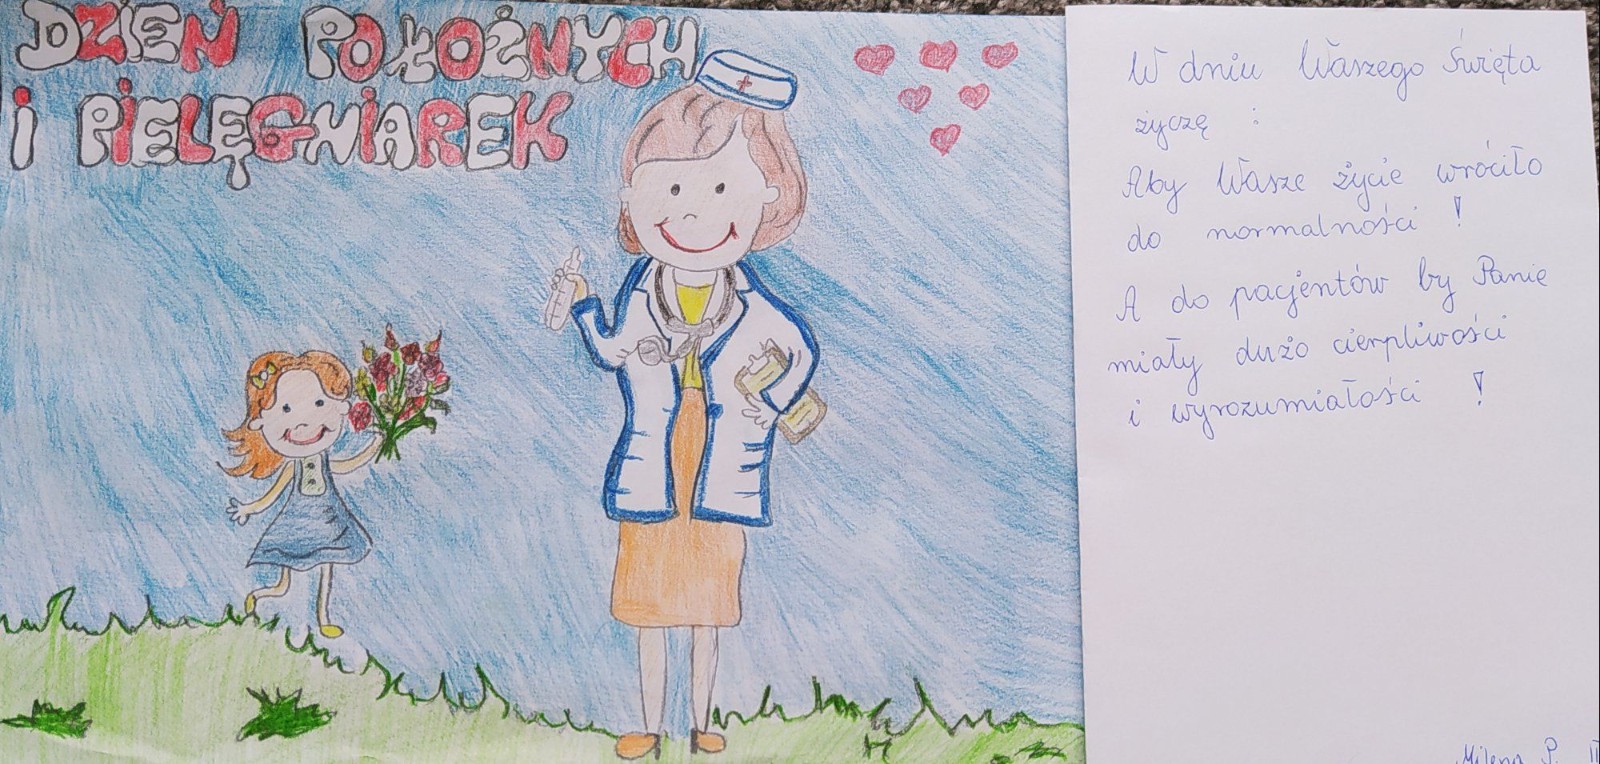 DZIEŃ POŁOŻNYCH
I PIELĘGNIAREK
W dniu Waszego Święta
życzę :
Aby Wasze życie wróciło
do normalności !
A do pacjentów by Panie
miały dużo cierpliwości
i wyrozumiałości !
Milena P.